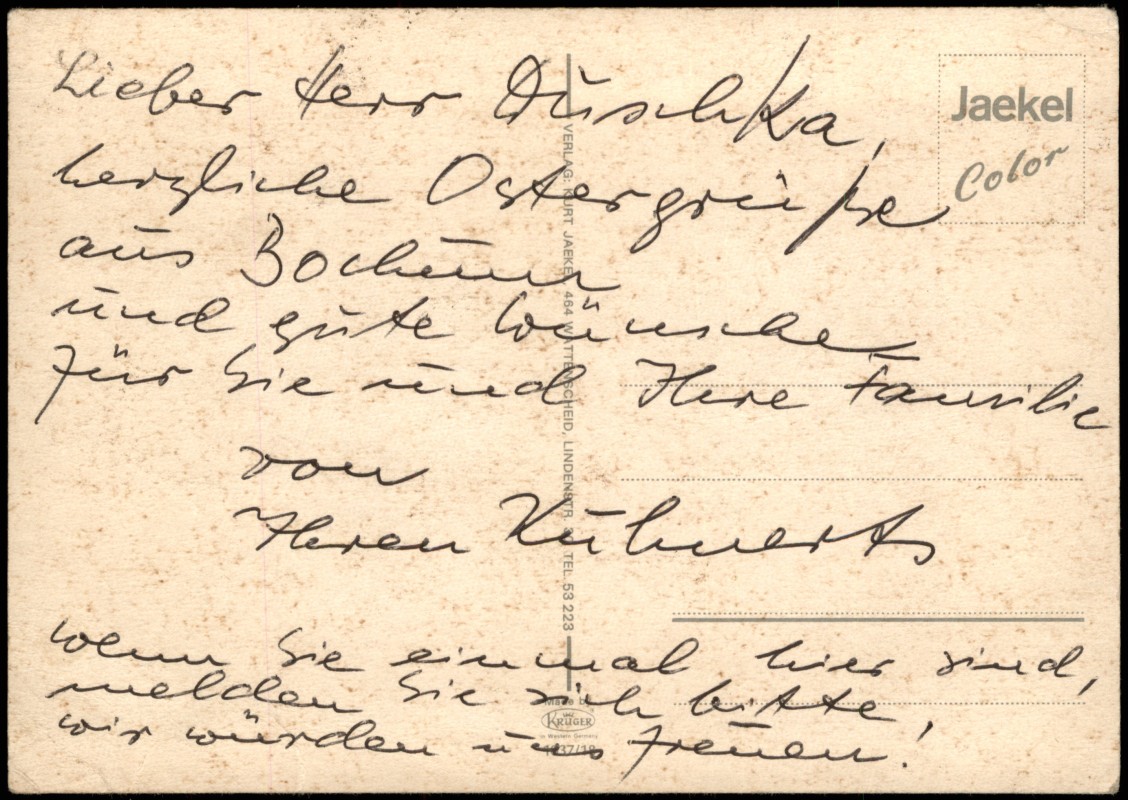 Lieber Herr Duschka,
herzliche Ostergrüße
aus Bochum
und gute Wünsche
für Sie und Ihre Familie
von
Ihren Kühnerts
wenn Sie einmal hier sind,
melden Sie sich bitte,
wir würden uns freuen!
Jaekel
Color
VERLAG: KURT JAEKEL, 464 WATTENSCHEID, LINDENSTR. TEL. 53 223
Made by
KRÜGER
in Western Germany